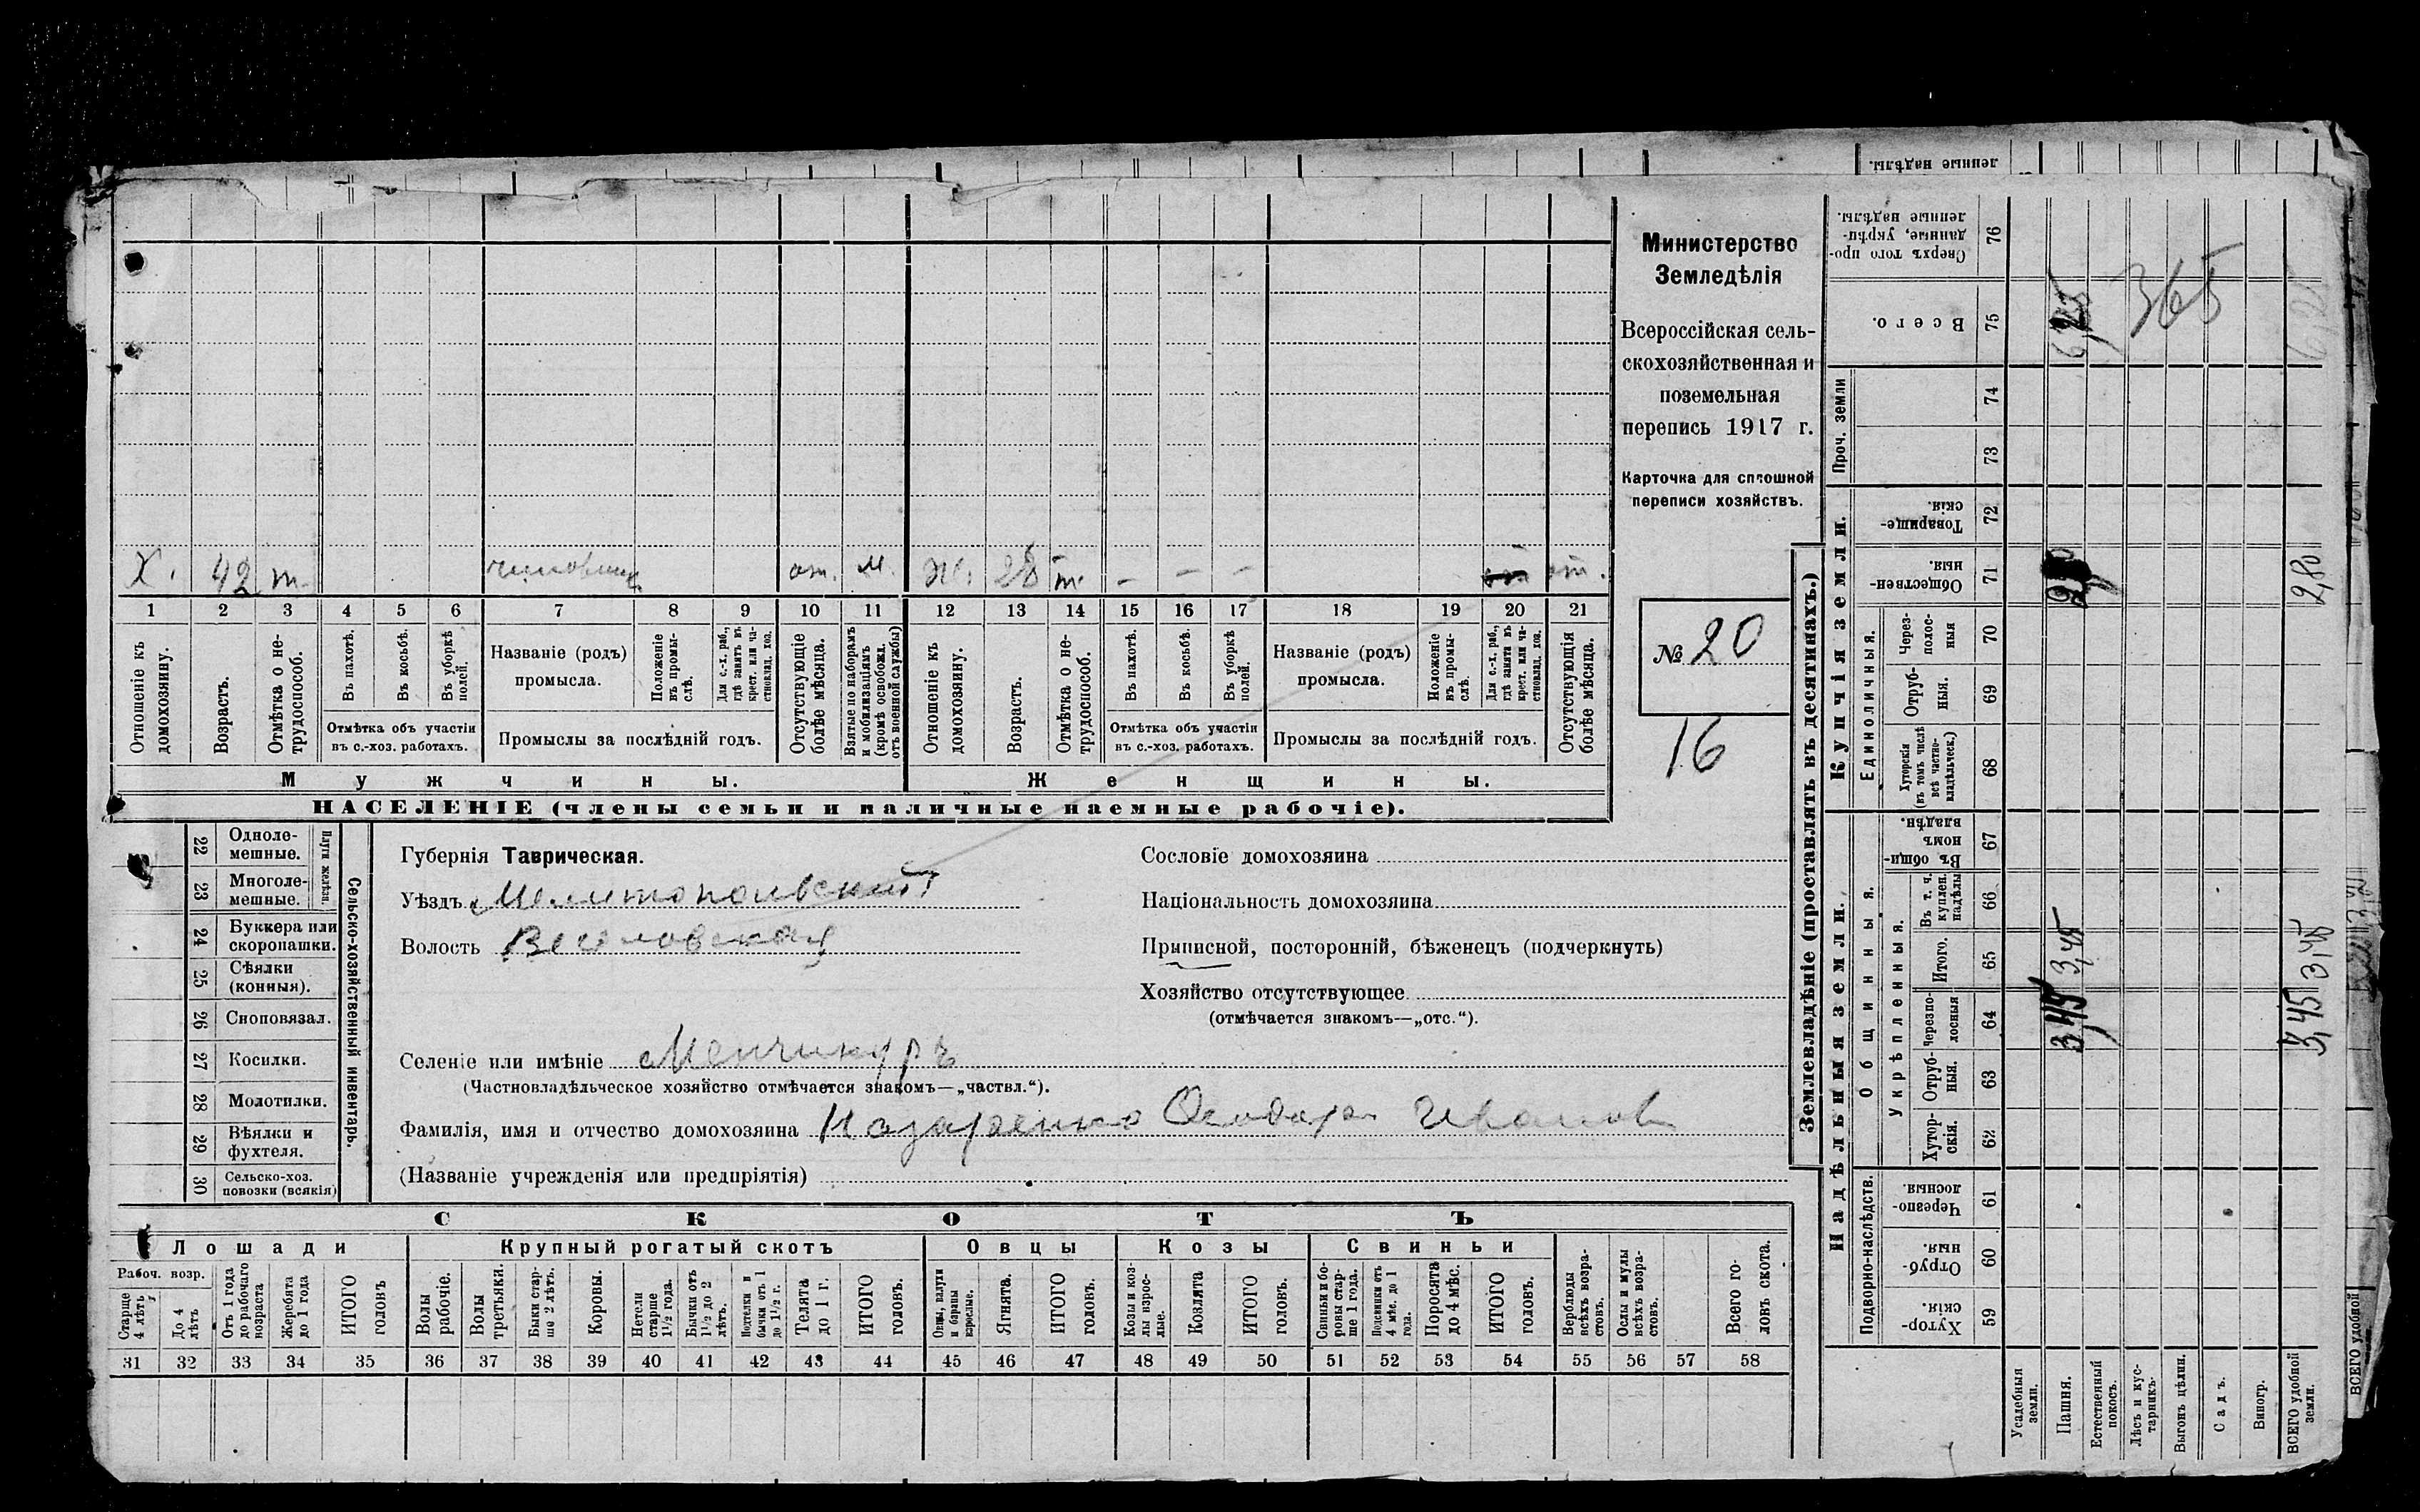 ленные надѣлы.
Х. 42 т чиновник от. м. Ж. 28 т. - - - от.
1 2 3 4 5 6 7 8 9 10 11 12 13 14 15 16 17 18 19 20 21
Отношеніе къ домохозяину.
Возрастъ.
Отмѣтка о не-
трудоспособ.
Въ пахотѣ.
Въ косьбѣ.
Въ уборкѣ полей.
Отмѣтка объ участіи
въ с.-хоз. работахъ.
Названіе (родъ)
промысла.
Положеніе въ промы-
слѣ.
Для с.-х. раб., гдѣ занятъ въ крест. или ча-
стновлад. хоз.
Промыслы за послѣдній годъ.
Отсутствующіе болѣе мѣсяца.
Взятые по наборамъ и мобилизаціямъ (кромѣ освобожд. отъ военной службы)
Отношеніе къ домохозяину.
Возрастъ.
Отмѣтка о не-
трудоспособ.
Въ пахотѣ.
Въ косьбѣ.
Въ уборкѣ полей.
Отмѣтка объ участіи
въ с.-хоз. работахъ.
Названіе (родъ)
промысла.
Положеніе въ промы-
слѣ.
Для с.-х. раб., гдѣ занята въ крест. или ча-
стновлад. хоз.
Промыслы за послѣдній годъ.
Отсутствующія болѣе мѣсяца.
Мужчины. Женщины.
НАСЕЛЕНІЕ (члены семьи и наличные наемные рабочіе).
Министерство
Земледѣлія
Всероссійская сель-
скохозяйственная и
поземельная
перепись 1917 г.
Карточка для сплошной
переписи хозяйствъ.
№ 20
16
22 Одноле-
мешные.
23 Многоле-
мешные.
Плуги желѣзн.
24 Буккера или
скоропашки.
25 Сѣялки
(конныя).
26 Сноповязал.
27 Косилки.
28 Молотилки.
29 Вѣялки и
фухтеля.
30 Сельско-хоз.
повозки (всякія)
Сельско-хозяйственный инвентарь.
Губернія Таврическая.
Уѣздъ Мелитопольскій
Волость Веселовская
Селеніе или имѣніе Менчикуръ
(Частновладѣльческое хозяйство отмѣчается знакомъ—„частвл.“).
Фамилія, имя и отчество домохозяина Назаренко Ѳеодоръ Иванов
(Названіе учрежденія или предпріятія)
Сословіе домохозяина
Національность домохозяина
Приписной, посторонній, бѣженецъ (подчеркнуть)
Хозяйство отсутствующее
(отмѣчается знакомъ—„отс.“).
СКОТЪ
Лошади Крупный рогатый скотъ Овцы Козы Свиньи
Рабоч. возр.
Старше 4 лѣтъ
До 4 лѣтъ
Отъ 1 года до рабочаго возраста
Жеребята до 1 года
ИТОГО головъ
Волы рабочіе.
Волы третьяки.
Быки стар-
ше 2 лѣтъ.
Коровы.
Нетели старше 1½ года.
Бычки отъ 1½ до 2 лѣтъ.
Подтелки и бычки отъ 1 до 1½ г.
Телята до 1 г.
ИТОГО головъ.
Овцы, валухи и бараны взрослые.
Ягнята.
ИТОГО головъ.
Козы и коз-
лы взрос-
лые.
Козлята
ИТОГО головъ.
Свиньи и бо-
ровы стар-
ше 1 года.
Подсвинки отъ 4 мѣс. до 1 года.
Поросята до 4 мѣс.
ИТОГО головъ.
Верблюды всѣхъ возра-
стовъ.
Ослы и мулы всѣхъ возра-
стовъ.
Всего го-
ловъ скота.
31 32 33 34 35 36 37 38 39 40 41 42 43 44 45 46 47 48 49 50 51 52 53 54 55 56 57 58
Землевладѣніе (проставлять въ десятинахъ.)
Сверхъ того про-
данные, укрѣп-
ленные надѣлы.
76
Всего.
75 6,25 365 6,25
Проч. земли
74
73
Купчія земли.
Товарище-
скія.
72
Обществен-
ныя.
71 2,80
Единоличныя.
Через-
полос-
ныя
70
Отруб-
ныя.
69
Хуторскія
(въ томъ числѣ
всѣ частно-
владѣльческ.)
68
Надѣльныя земли.
Общинныя.
Въ общи-
номъ
владѣн.
67
Укрѣпленныя.
Въ т. ч.
куплен.
надѣлы
66
Итого.
65 3,45 3,45
Черезпо-
лосныя
64 3,45 3,45
Отруб-
ныя.
63
Хутор-
скія.
62
Подворно-наслѣдств.
Черезпо-
лосныя.
61
Отруб-
ныя.
60
Хутор-
скія.
59
Усадебныя земли.
Пашня.
Естественный покосъ.
Лѣсъ и кус-
тарникъ.
Выгонъ цѣлин.
Садъ.
Виногр.
ВСЕГО удобной земли.
ВСЕГО удобной